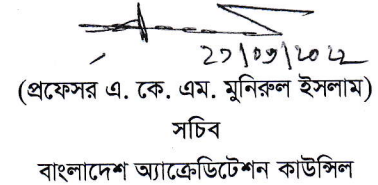 (প্রফেসর এ. কে. এম. মুনিরুল ইসলাম)
সচিব
বাংলাদেশ অ্যাক্রেডিটেশন কাউন্সিল